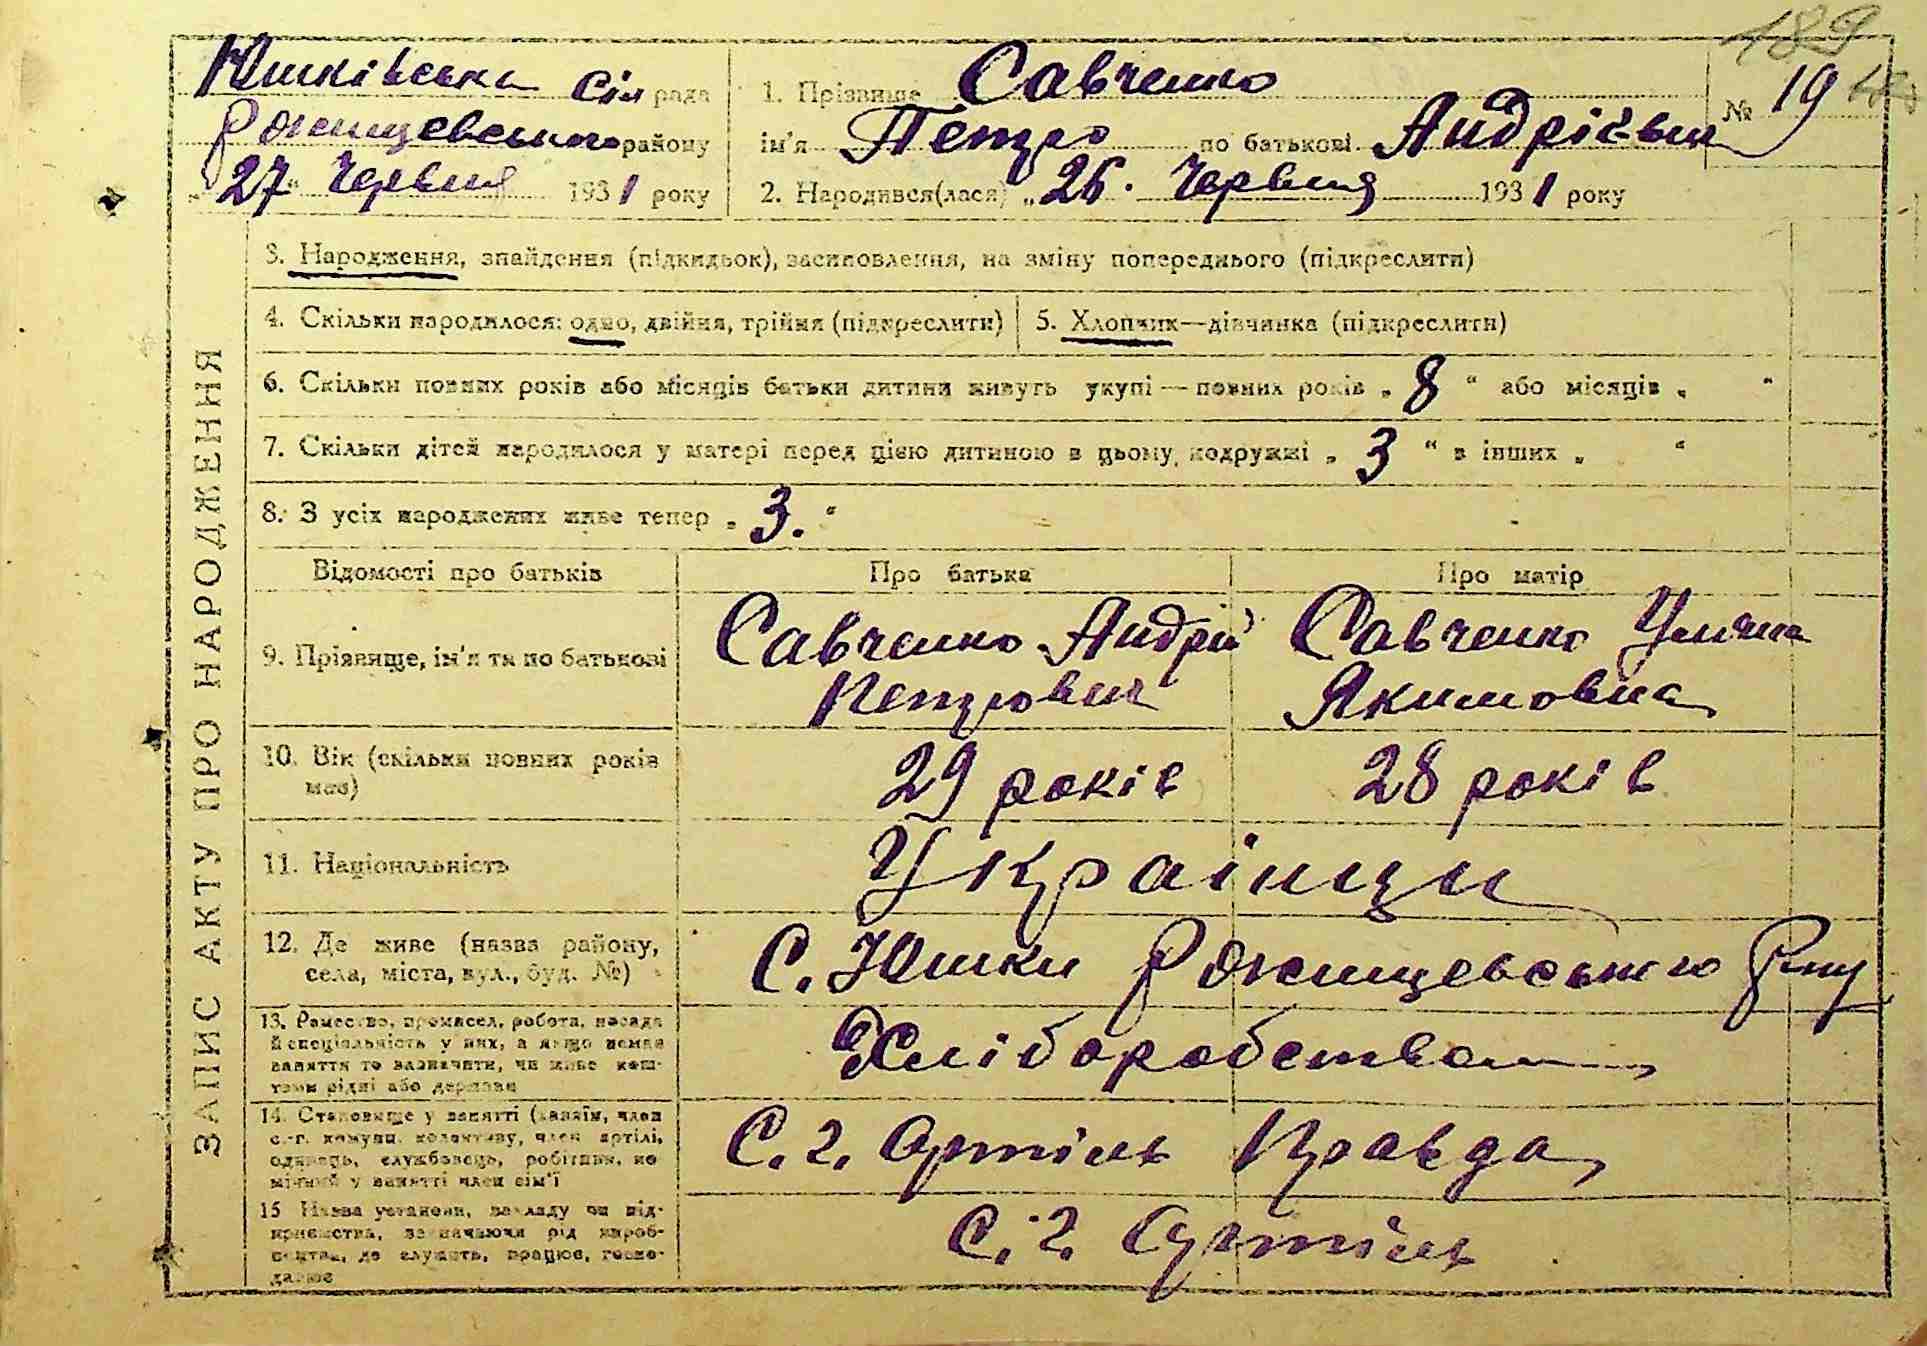 189
Юшківська сіл рада
Ржищевського району
„27“ Червня 1931 року
1. Прізвище Савченко
№ 19
ім'я Петро по батькові Андрієвич
2. Народився(лася) „26. Червня 1931 року
ЗАПИС АКТУ ПРО НАРОДЖЕННЯ
3. Народження, знайдення (підкидьок), засиновлення, на зміну попереднього (підкреслити)
4. Скільки народилося: одно, двійня, трійня (підкреслити)
5. Хлопчик—дівчинка (підкреслити)
6. Скільки повних років або місяців батьки дитини живуть укупі — повних років „8“ або місяців „ “
7. Скільки дітей народилося у матері перед цією дитиною в цьому подружжі „3“ в інших „ “
8. З усіх народжених живе тепер „3.“
Відомості про батьків
Про батька
Про матір
9. Прізвище, ім'я та по батькові
Савченко Андрій
Петрович
Савченко Улияна
Якимовна
10. Вік (скільки повних років
має)
29 років
28 років
11. Національність
Українци
12. Де живе (назва району,
села, міста, вул., буд. №)
С. Юшки Ржищевського Р-ну
13. Ремество, промисел, робота, посада
й спеціяльність у них, а якщо немає
заняття то зазначити, чи живе кош-
том рідні або держави
Хліборобством
14. Становище у занятті (хазяїн, член
с.-г. комуни, колективу, член артілі,
одинець, службовець, робітник, по
мічний у занятті член сім'ї
С. г. Артіль Правда
15 Назва установи, закладу чи під-
приємства, зазначаючи рід вироб-
ництва, де служить, працює, госпо-
дарює
С. г. Артіль